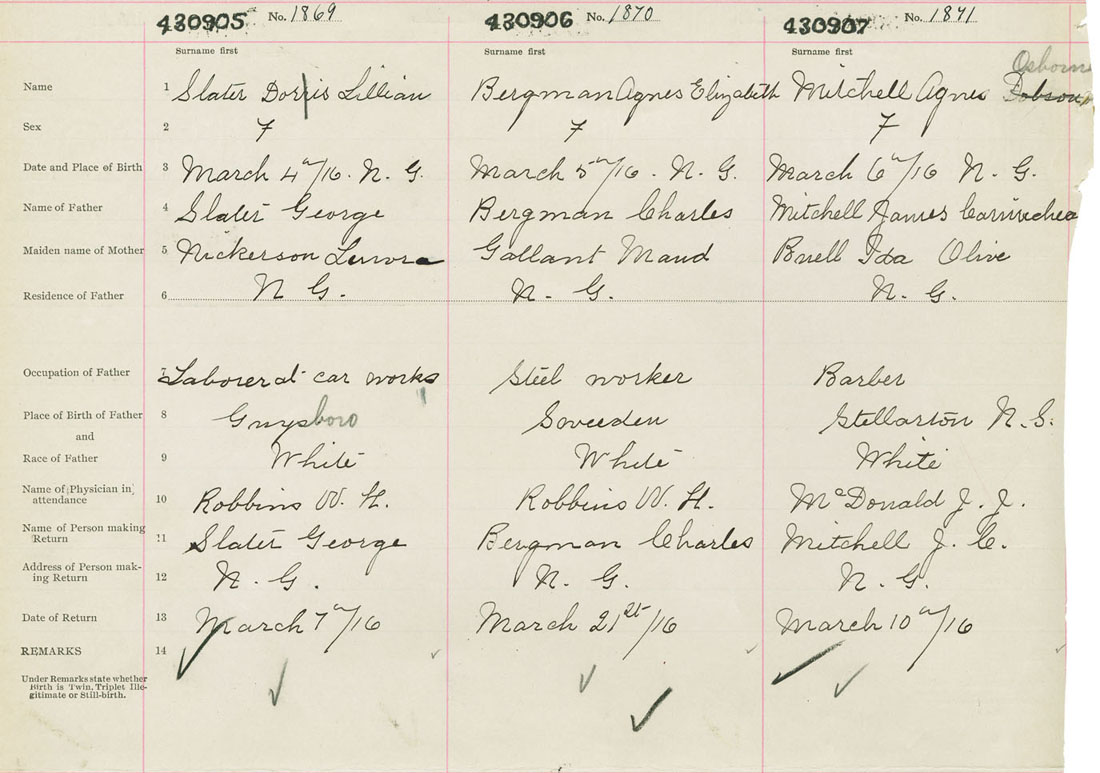 430905 No. 1869 430906 No. 1870 430907 No. 1871
Surname first Surname first Surname first
Osborne
Name 1 Slater Dorris Lillian Bergman Agnes Elizabeth Mitchell Agnes Dobson
Sex 2 F F F
Date and Place of Birth 3 March 4th/16. N. G. March 5th/16. N. G. March 6th/16 N. G.
Name of Father 4 Slater George Bergman Charles Mitchell James
Maiden name of Mother 5 Nickerson Gallant Maud Buell Ida Olive
Residence of Father 6 N G. N. G. N. G.
Occupation of Father 7 Laborer at car works Steel worker Barber
Place of Birth of Father 8 Guysboro Sweeden Stellarton N.S.
and
Race of Father 9 White White White
Name of Physician in
attendance 10 Robbins W. H. Robbins W. H. McDonald J. J.
Name of Person making
Return 11 Slater George Bergman Charles Mitchell J. C.
Address of Person mak-
ing Return 12 N. G. N. G. N. G.
Date of Return 13 March 7th/16 March 21st/16 March 10th/16
REMARKS 14
Under Remarks state whether
Birth is Twin, Triplet Ille-
gitimate or Still-birth.